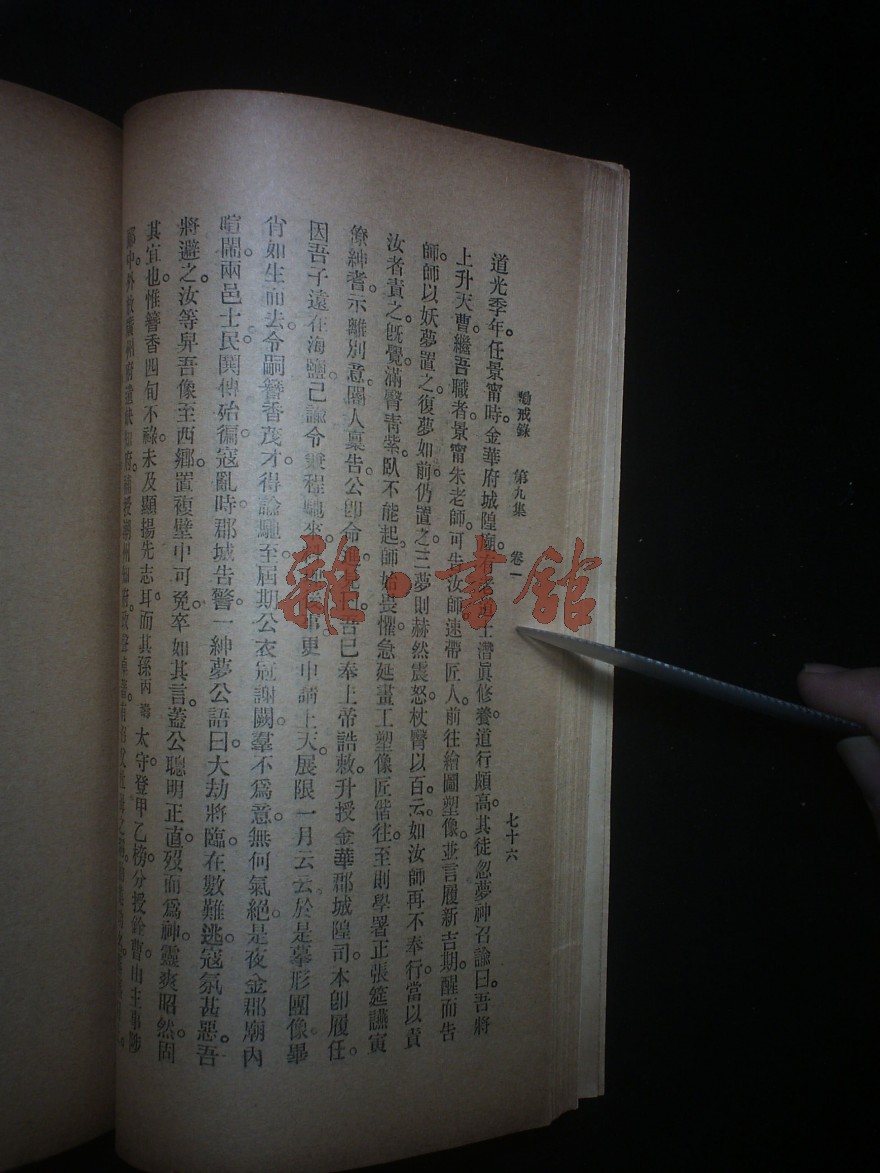 勸戒錄 第九集 卷一 七十六
道光季年。任景甯時。金華府城隍廟 士潛眞修養。道行頗高。其徒忽夢神召諭曰。吾將
上升天曹。繼吾職者。景甯朱老師。可告汝師。速帶匠人。前往繪圖塑像。並言履新吉期。醒而告
師。師以妖夢置之。復夢如前。仍置之。三夢則赫然震怒。杖臀以百。云。如汝師再不奉行。當以責
汝者責之。旣覺。滿臀靑紫。臥不能起。師始畏懼。急延畫工塑像匠偕往。至則學署正張筵讌寅
僚紳耆。示離別意。閽人稟告。公卽命進 告已奉上帝誥敕。升授金華郡城隍司。本卽履任。
因吾子遠在海鹽。已諭令兼程馳來 事。更申請上天。展限一月云云。於是摹形團像。畢
肖如生而去。令嗣簪香茂才得諭。馳至。屆期。公衣冠謝闕。羣不爲意。無何氣絕。是夜金郡廟內
喧鬧。兩邑士民。鬨傳殆徧。寇亂時。郡城告警。一紳夢公語曰。大劫將臨。在數難逃。寇氛甚惡。吾
將避之。汝等舁吾像至西鄉。置複壁中可免。卒如其言。蓋公聰明正直。歿而爲神。靈爽昭然。固
其宜也。惟簪香四旬不祿。未及顯揚先志耳。而其孫丙壽太守登甲乙榜。分授銓曹。由主事陟
郎中。外放 州府 府。 授潮州知府。
雜·書館